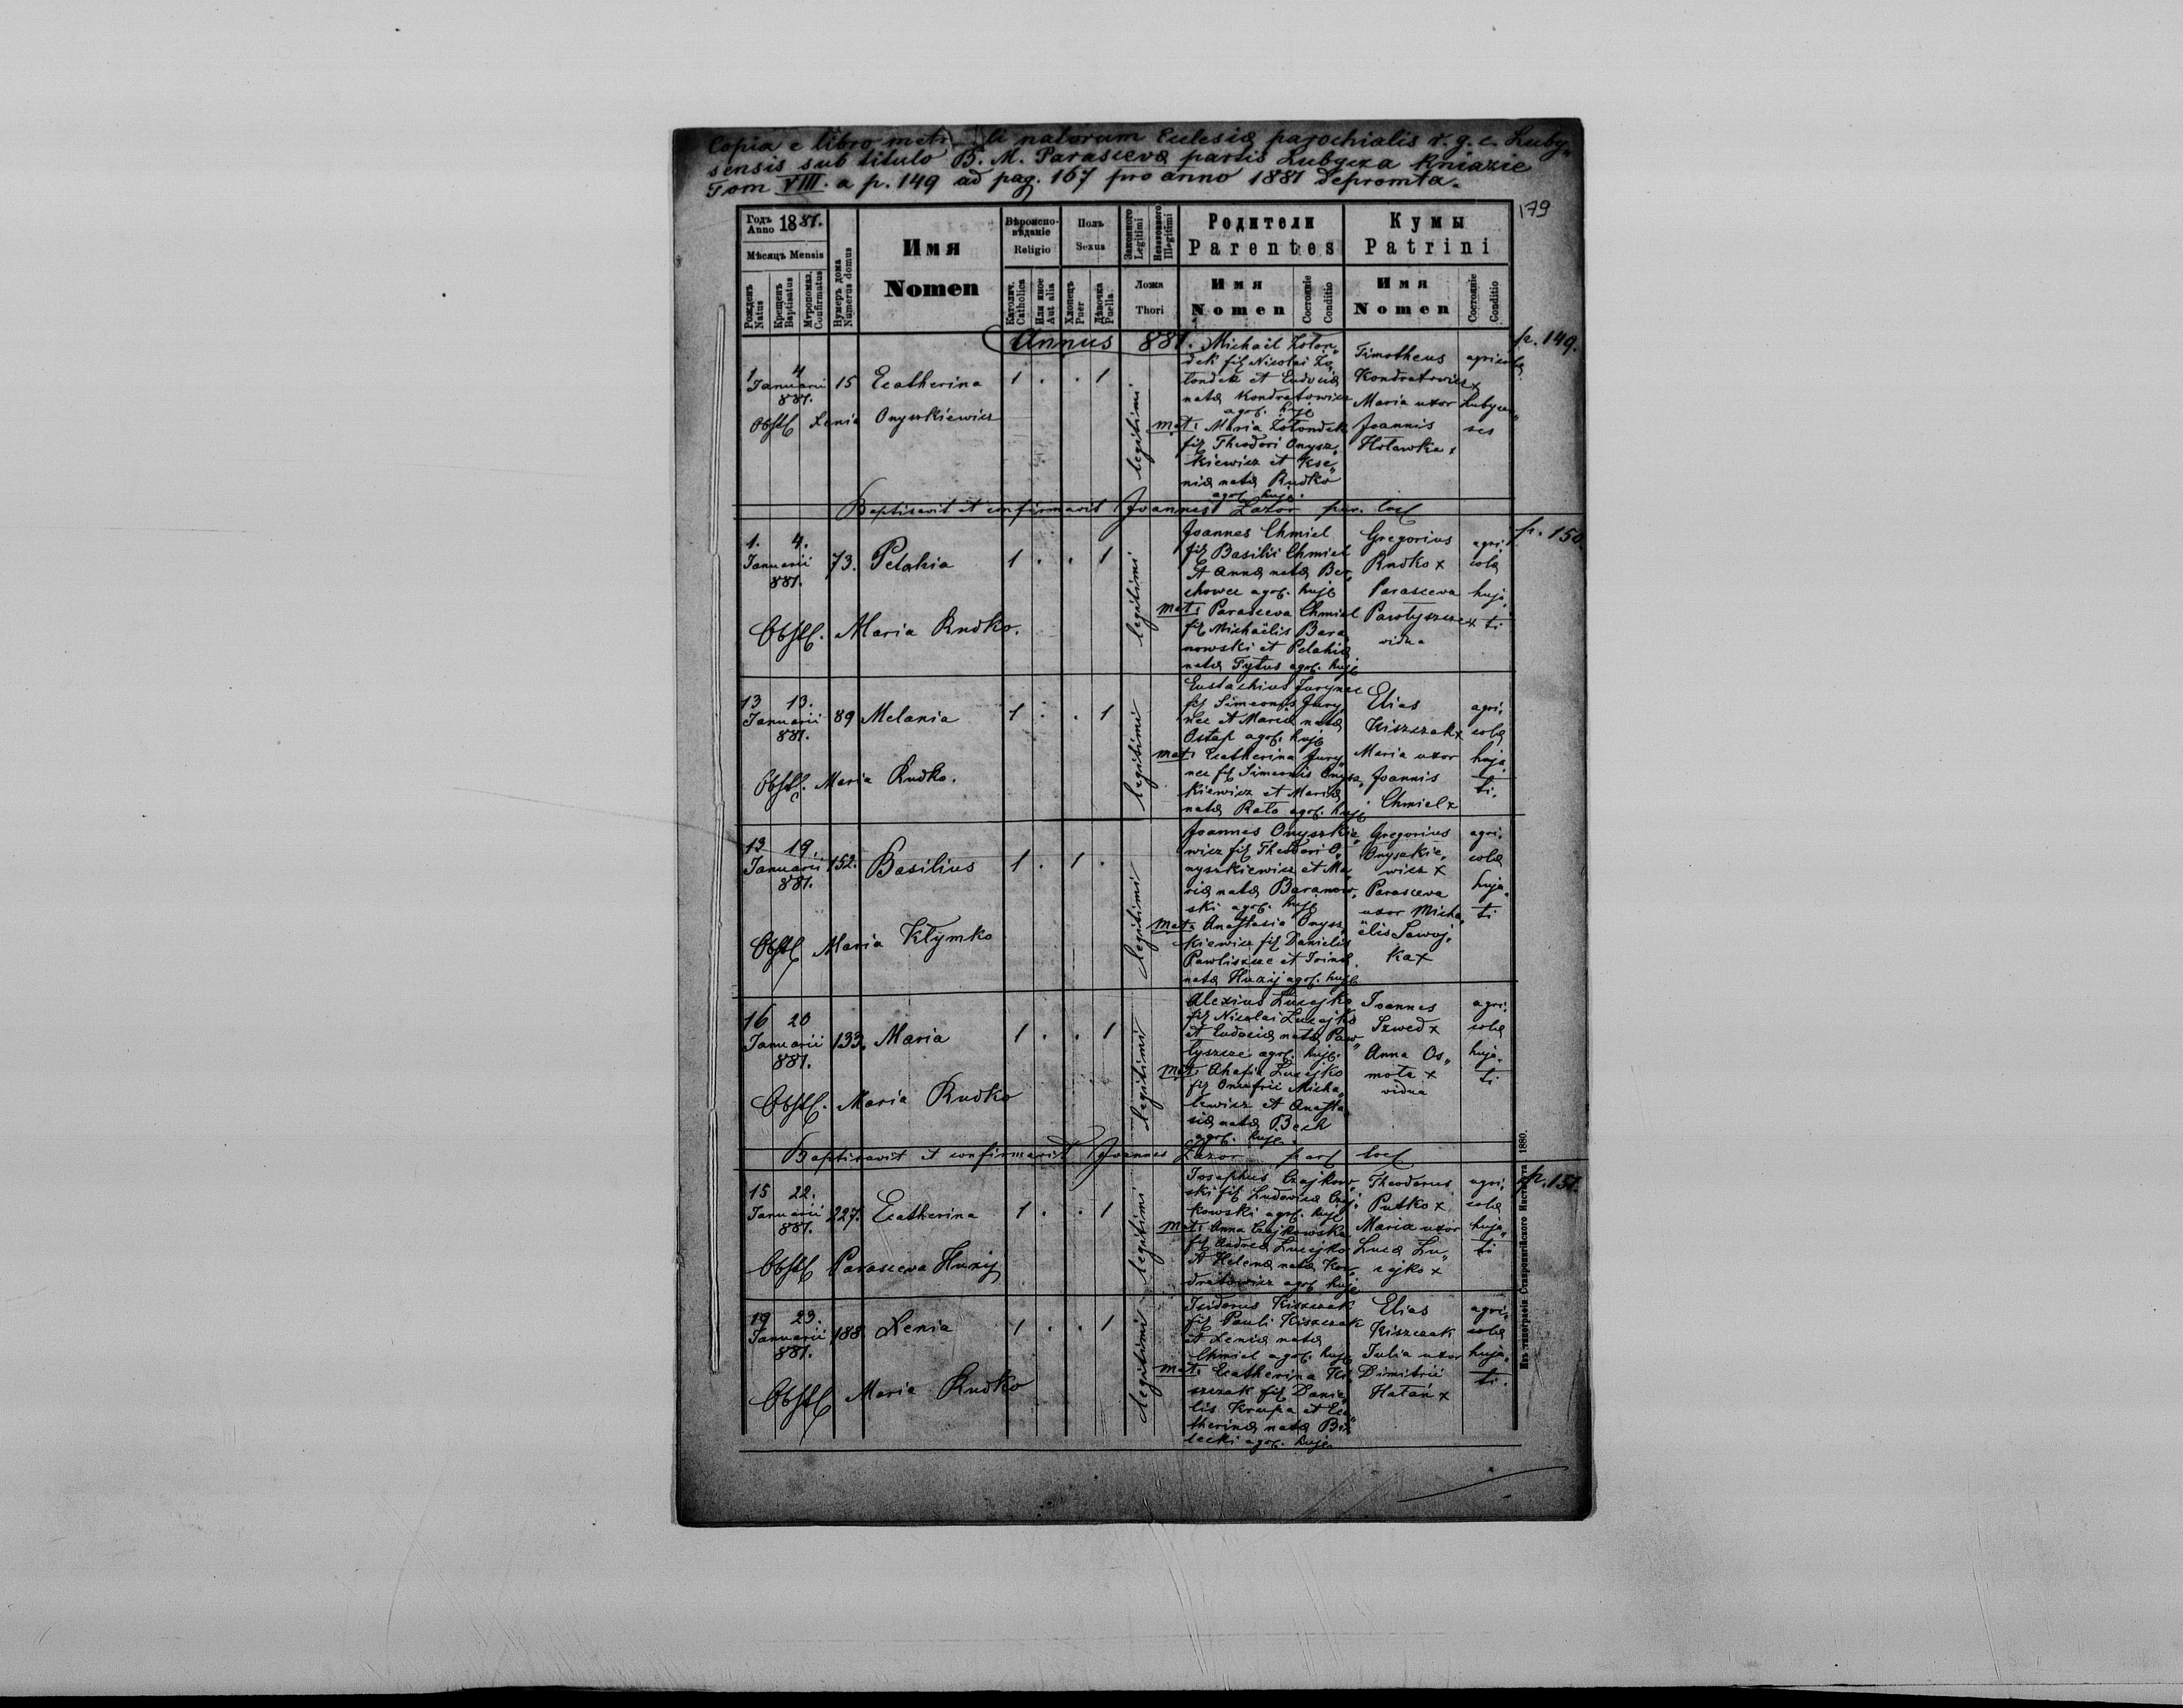 Copia e libro metr li natorum Eclesiæ parochialis r. g. c. Luby„
sensis sub titulo B. M. Parascevæ partis Lubycza Kniazie
Tom VIII. a p. 149 ad pag. 167 pro anno 1881 depromta.
179
Годъ Anno 1881.
Мѣсяцъ Mensis
Рожденъ Natus
Крещенъ Baptisatus
Мѵропомаз. Confirmatus
Нумеръ дома Numerus domus
Имя
Nomen
Вѣроиспо-
вѣданіе
Religio
Католич. Catholica
Или иное Aut alia
Полъ
Sexus
Хлопецъ Puer
Дѣвочка Puella
Законного Legitimi
Незаконного Illegitimi
Ложа
Thori
Родители
Parentes
Имя
Nomen
Состояніе
Conditio
Кумы
Patrini
Имя
Nomen
Состояніе
Conditio
Annus 881.
p. 149.
1 4
Januarii
881.
15 Ecatherina 1 . . 1
legitimi
Obst Xenia Onyszkiewicz
Michaël Zolon„
dek fil Nicolai Zo„
londek et Eudociæ
natæ Kondratowicz
agr. huj
mat: Maria Zolondek
fil Theodori Onysz„
kiewicz et Kse„
niæ natæ Rudko
agr huj.
Timotheus
Kondratowicz x
Maria uxor
Joannis
Holowka x
agricolæ
Lubycen„
ses
Baptisavit et confirmavit Joannes Lazor par. loc
p. 150
1. 4.
Januarii
881.
73. Pelahia 1 . . 1
legitimi
Obst. Maria Rudko.
Joannes Chmiel
fil Basilii Chmiel
et Annæ natæ Ber„
chowec agr. huj
mat: Parasceva Chmiel
fil Michaëlis Bara„
nowski et Pelahiæ
natæ Tytus agr. huj
Gregorius
Rudko x
Parasceva
Pawlyszcze x
vidua
agri„
colæ
huja„
ti
13 13.
Januarii
881.
89 Melania 1 . . 1
legitimi
Obst. Maria Rudko.
Eustachius Jurynec
fil Simeonis Jury„
nec et Mariæ natæ
Ostap agr. huj
mat: Ecatherina Jury„
nec fil Simeonis Onysz„
kiewicz et Mariæ
natæ Rato agr. huj
Elias
Kiszczak x
Maria uxor
Joannis
Chmiel x
agri„
colæ
huja„
ti.
13 19.
Januarii
881.
152. Basilius 1 . 1 .
legitimi
Obst Maria Klymko
Joannes Onyszkie„
wicz fil Theodori O„
nyszkiewicz et Ma„
riæ natæ Baranow„
ski agr. huj
mat: Anastasia Onysz„
kiewicz fil Danielis
Pawliszcze et Irinæ
natæ Huzij agr. huj
Gregorius
Onyszkie„
wicz x
Parasceva
uxor Micha„
ëlis Sawoj„
ka x
agri„
colæ
huja„
ti
16 20
Januarii
881.
133. Maria 1 . . 1
legitimi
Obst. Maria Rudko
Alexius Lucejko
fil Nicolai Lucejko
et Eudociæ natæ Paw„
lyszcze agr. huj.
mat: Ahafia Lucejko
fil Onufrii Micha„
lewicz et Anasta„
siæ natæ Bech
agr. huj.
Joannes
Szwed x
Anna Os„
mota x
vidua
agri„
colæ
huja„
ti
Baptisavit et confirmavit Joannes Lazor par loc
p. 151.
15 22.
Januarii
881.
227. Ecatherina 1 . . 1
legitimi
Obst Parasceva Huzij
Josephus Czajkow„
ski fil Ludovicæ Czaj„
kowski agr. huj
mat: Anna Czajkowska
fil Andreæ Lucejko
et Helenæ natæ Kon„
dratowicz agr huj
Theodorus
Putko x
Maria uxor
Lucæ Lu„
cejko x
agri„
colæ
huja„
ti
19 23.
Januarii
881.
188 Xenia 1 . . 1
legitimi
Obst Maria Rudko
Isidorus Kiszczak
fil Pauli Kiszczak
et Xeniæ natæ
Chmiel agr. huj
mat: Ecatherina Ki„
szczak fil Danie„
lis Krupa et Eca„
therinæ natæ Bi
lecki agr. huj.
Elias
Kiszczak
Julia uxor
Dimitrii
Hatan x
agri„
colæ
huja„
ti.
Изъ типографіи Ставропигійского Института 1880.